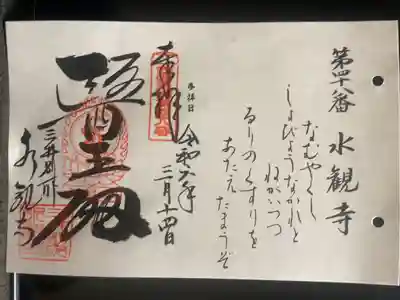 第四十八番 水観寺
なむやくし
しよびようなかれと
ねがいつつ
るりのくすりを
あたえたまうぞ
参拝日
令和六年
三月十四日
奉拝
醫王殿
水観寺